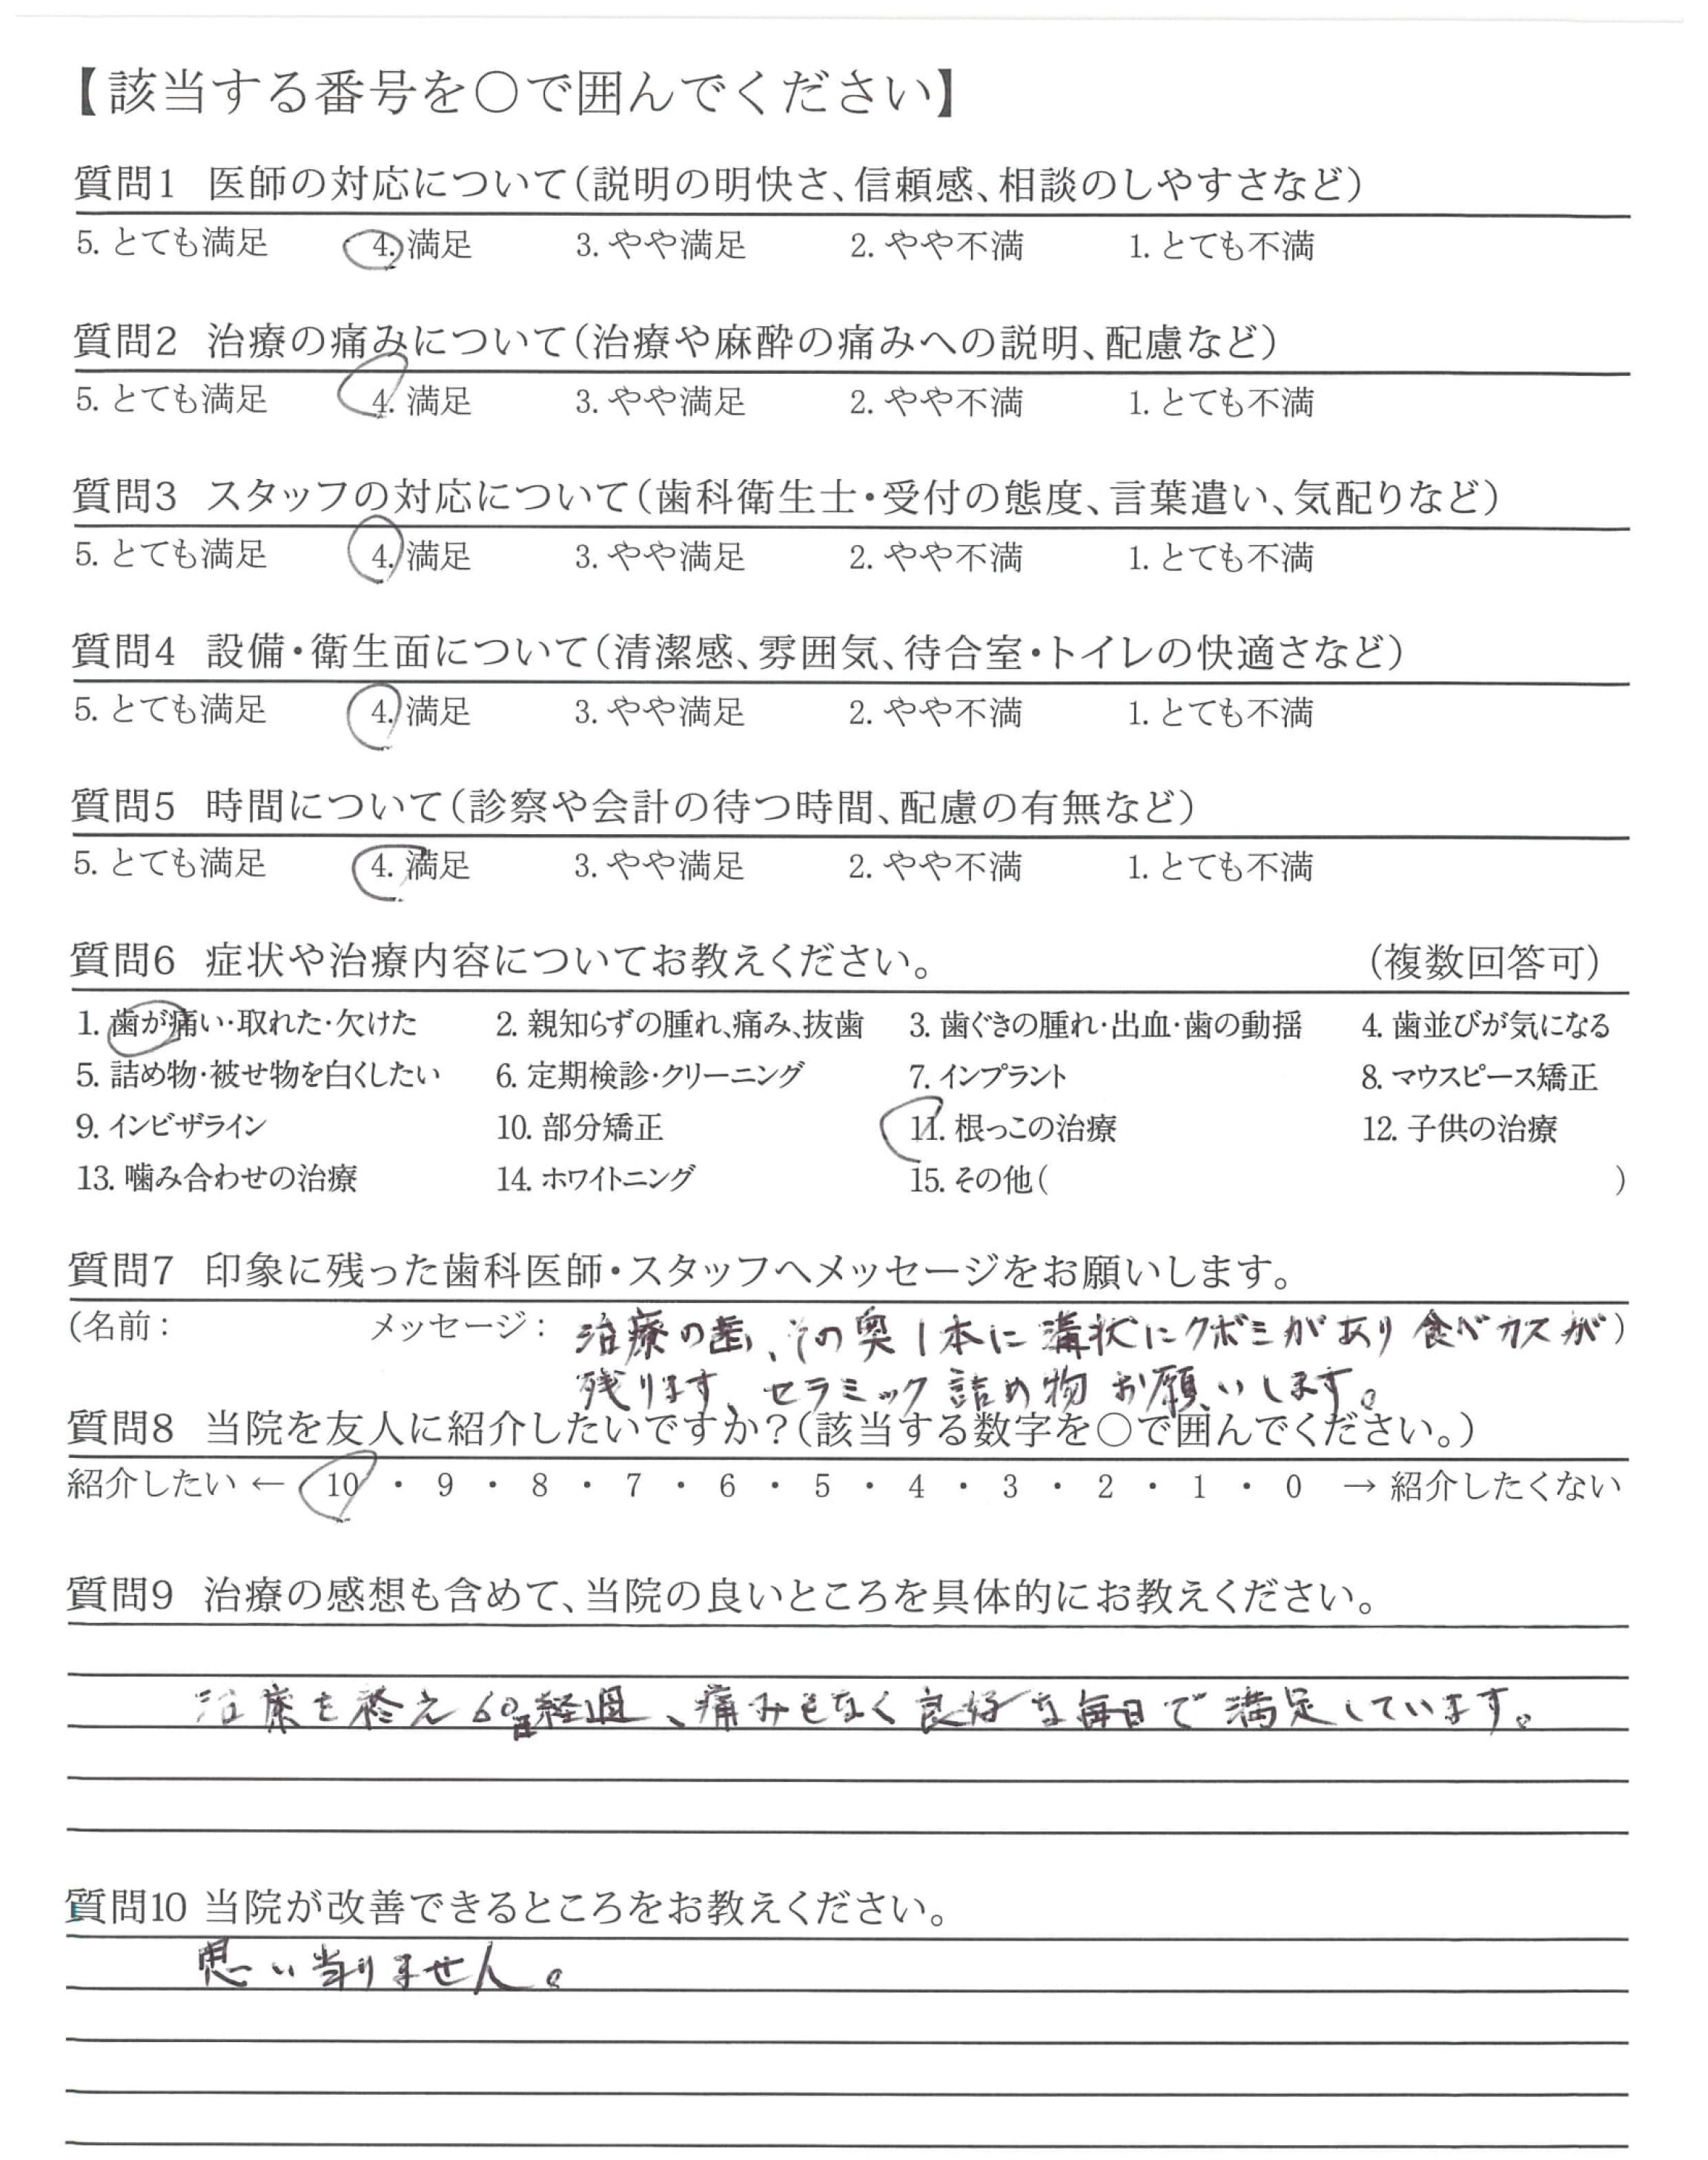 【該当する番号を○で囲んでください】
質問1 医師の対応について（説明の明快さ、信頼感、相談のしやすさなど）
5. とても満足 4. 満足 3. やや満足 2. やや不満 1. とても不満
質問2 治療の痛みについて（治療や麻酔の痛みへの説明、配慮など）
5. とても満足 4. 満足 3. やや満足 2. やや不満 1. とても不満
質問3 スタッフの対応について（歯科衛生士・受付の態度、言葉遣い、気配りなど）
5. とても満足 4. 満足 3. やや満足 2. やや不満 1. とても不満
質問4 設備・衛生面について（清潔感、雰囲気、待合室・トイレの快適さなど）
5. とても満足 4. 満足 3. やや満足 2. やや不満 1. とても不満
質問5 時間について（診察や会計の待つ時間、配慮の有無など）
5. とても満足 4. 満足 3. やや満足 2. やや不満 1. とても不満
質問6 症状や治療内容についてお教えください。 （複数回答可）
1. 歯が痛い・取れた・欠けた 2. 親知らずの腫れ、痛み、抜歯 3. 歯ぐきの腫れ・出血・歯の動揺 4. 歯並びが気になる
5. 詰め物・被せ物を白くしたい 6. 定期検診・クリーニング 7. インプラント 8. マウスピース矯正
9. インビザライン 10. 部分矯正 11. 根っこの治療 12. 子供の治療
13. 噛み合わせの治療 14. ホワイトニング 15. その他（ ）
質問7 印象に残った歯科医師・スタッフへメッセージをお願いします。
（名前： メッセージ： 治療の歯、その奥1本に溝状にクボミがあり食べカスが）
残ります、セラミック詰め物お願いします。
質問8 当院を友人に紹介したいですか？（該当する数字を○で囲んでください。）
紹介したい ← 10 ・ 9 ・ 8 ・ 7 ・ 6 ・ 5 ・ 4 ・ 3 ・ 2 ・ 1 ・ 0 → 紹介したくない
質問9 治療の感想も含めて、当院の良いところを具体的にお教えください。
治療を終え60日経過、痛みもなく良好な毎日で満足しています。
質問10 当院が改善できるところをお教えください。
思い当りません。